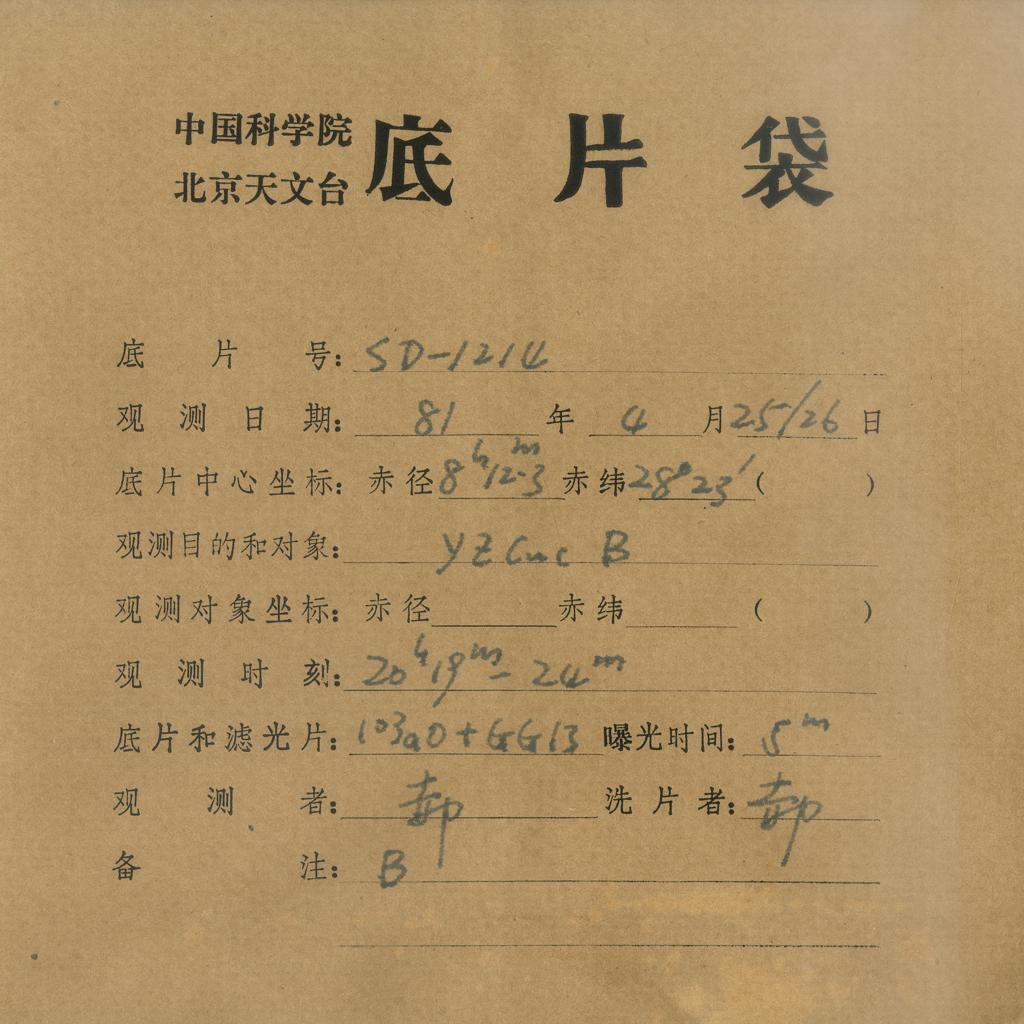 中国科学院
北京天文台
底片袋
底片号：SD-1214
观测日期：81年4月25/26日
底片中心坐标：赤径8h12.m3赤纬28°23′（ ）
观测目的和对象：YZ Cnc B
观测对象坐标：赤径 赤纬 （ ）
观测时刻：20h19m-24m
底片和滤光片：103aO+GG13 曝光时间：5m
观测者： 洗片者：
备注：B